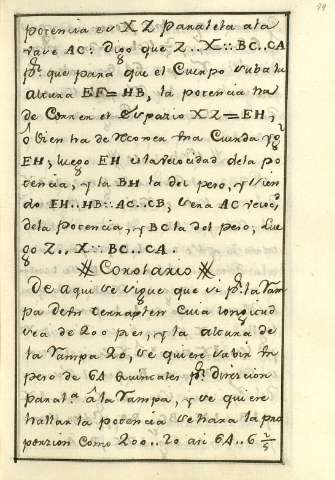 potencia es XZ Paralela a la
vase AC: digo que Z..X::BC..CA
pr. que para que el Cuerpo suba tu
altura EF=HB, la potencia ha
de Correr el Espazio XZ=EH,
ô bien ha de recorrer tna Cuerda yg
EH; luego EH es la velocidad dela po
tencia, y la BH la del peso, y sien
do EH..HB::AC..CB, sera AC veloc.d
dela Potencia, y BC la del peso, Lue
go Z..X::BC..CA.
Corolario
De aqui se sigue que si pr. la Ram
pa de tn terraplen cuia longitud
sea de 200 pies, y la altura de
la Rampa 20, se quiere subir tn
peso de 64 quintales pr. direzion
paral.a â la Rampa, y se quiere
hallar la potencia se hara la pro
porzion como 200..20 asi 64..6 2/5